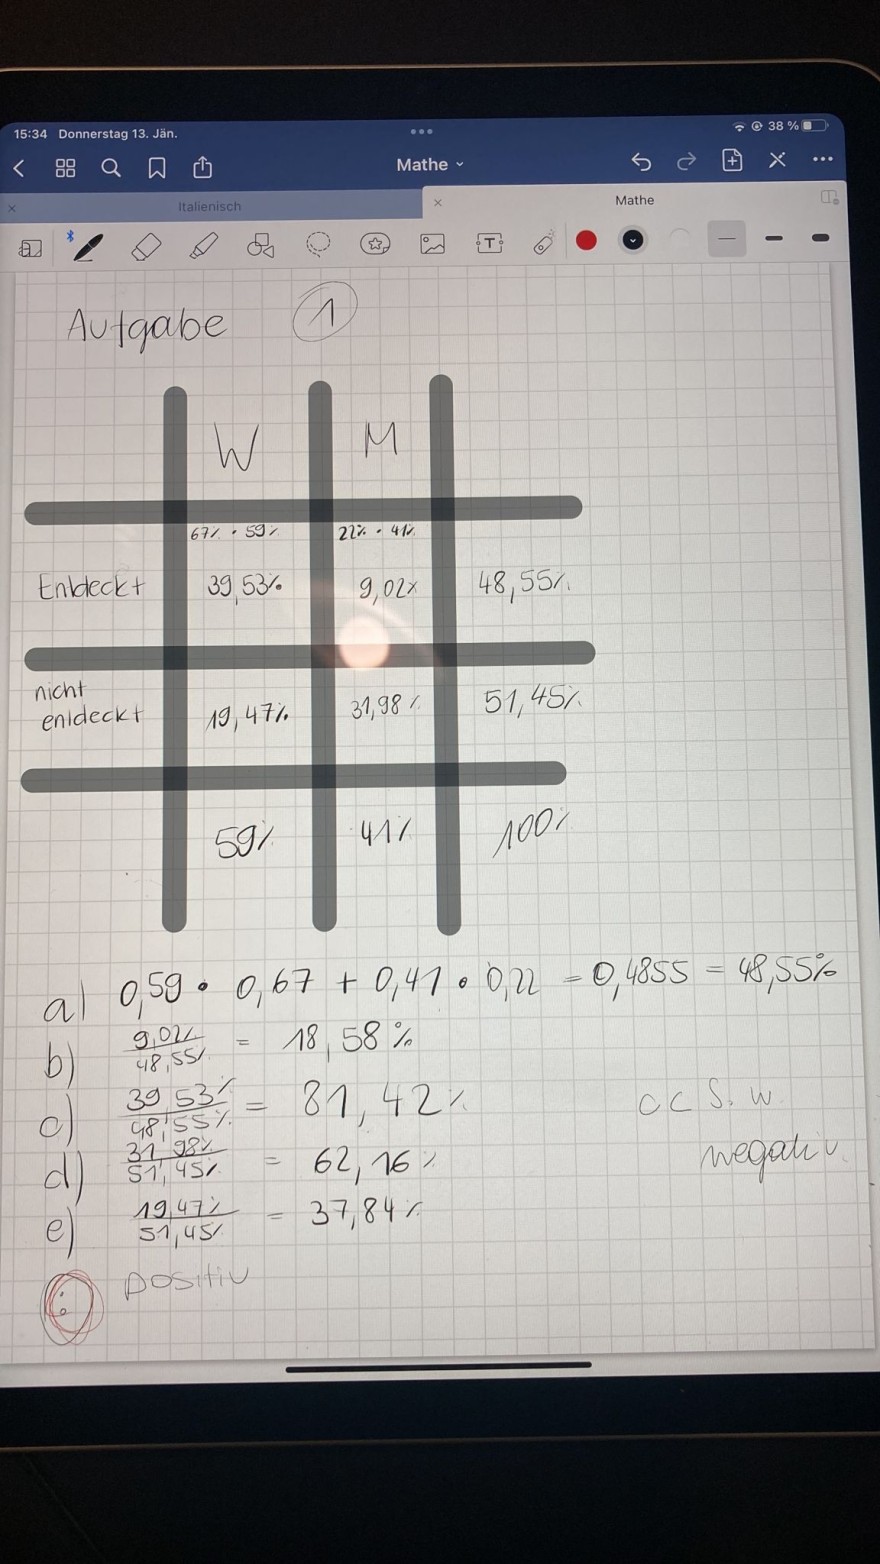 15:34 Donnerstag 13. Jän.
38 %
Mathe
Italienisch
Mathe
Aufgabe 1
W M
67% · 59% 22% · 41%
Entdeckt 39,53% 9,02% 48,55%
nicht
entdeckt 19,47% 31,98% 51,45%
59% 41% 100%
a) 0,59 · 0,67 + 0,41 · 0,22 = 0,4855 = 48,55%
b) 9,02% / 48,55% = 18,58%
c) 39,53% / 48,55% = 81,42%
d) 31,98% / 51,45% = 62,16%
e) 19,47% / 51,45% = 37,84%
negativ
positiv